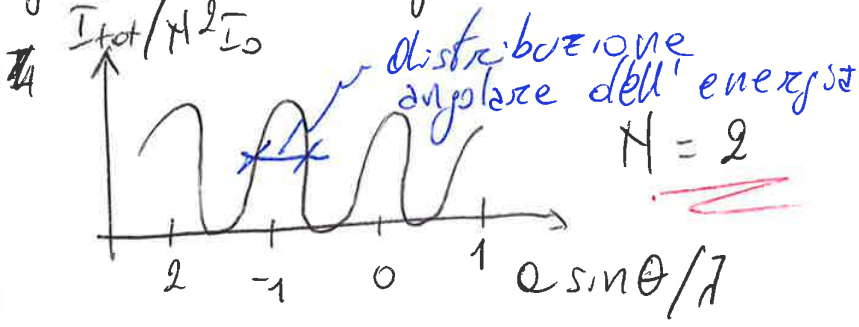 I_tot/N²I_0
distribuzione
angolare dell'energia
N = 2
2 -1 0 1 a sinθ/λ